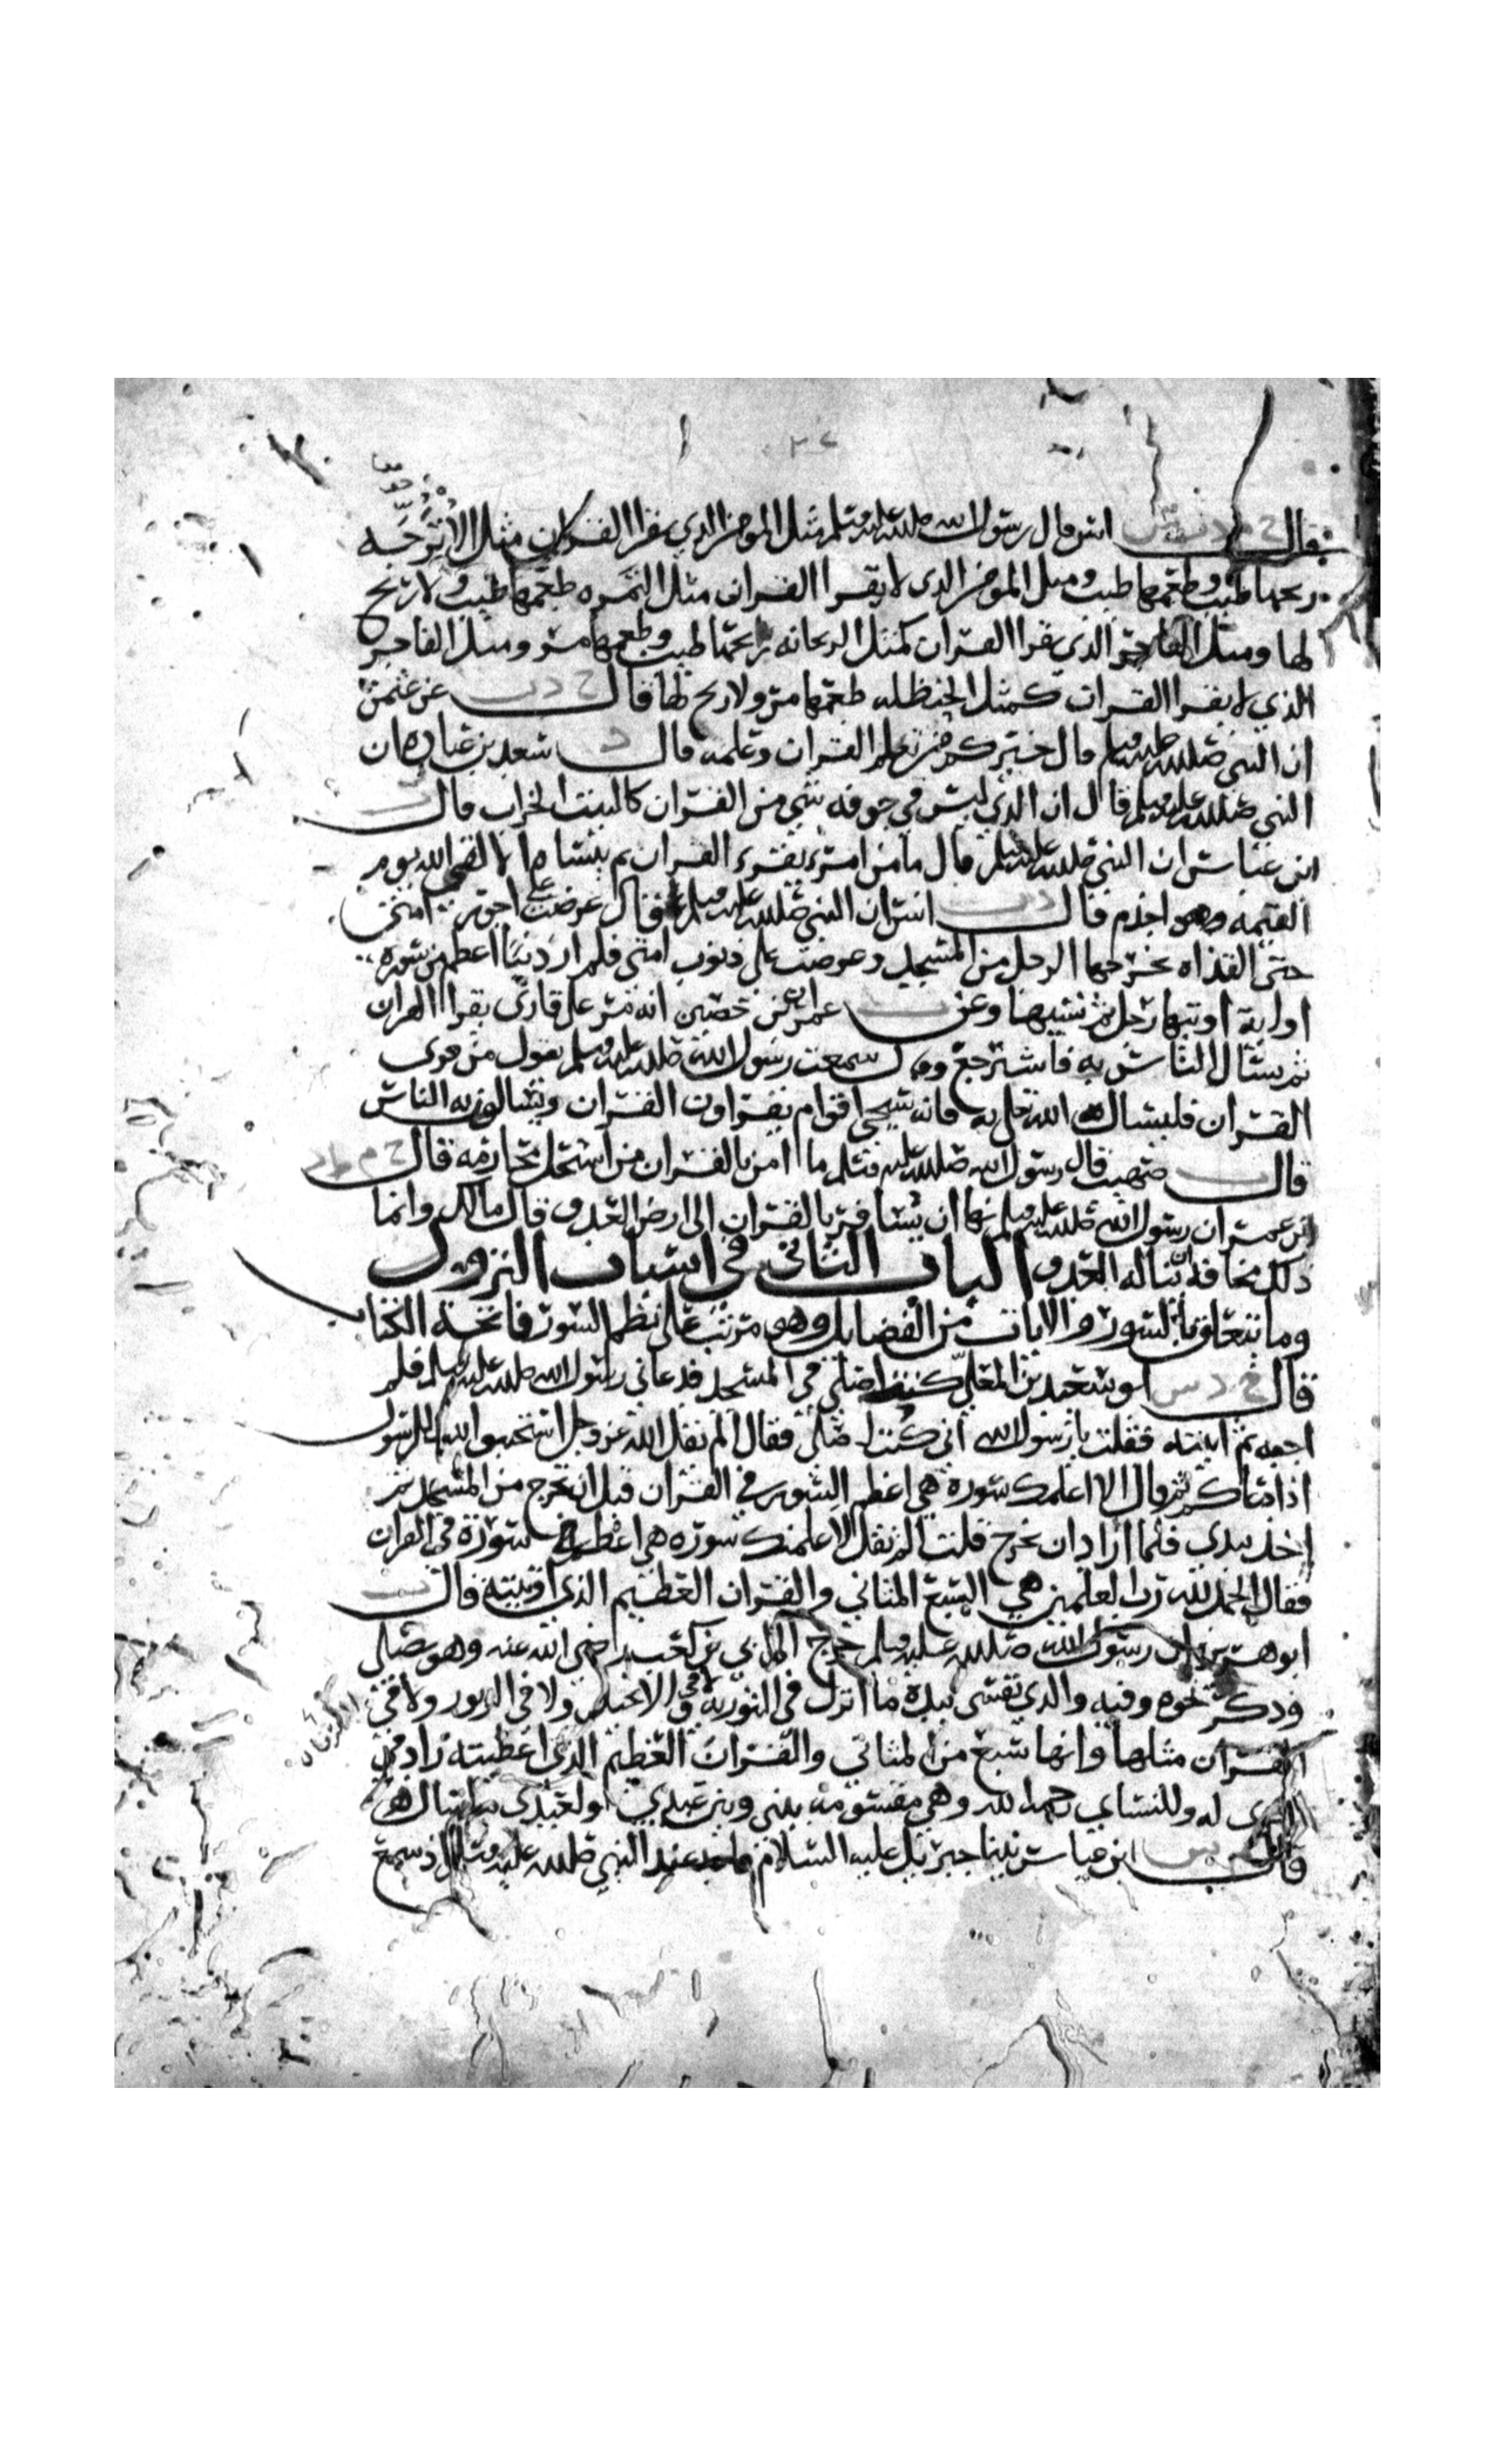 قال خ م د ت س انس قال رسول الله صلى الله عليه وسلم مثل المومن الذي يقرا القران مثل الاترجه
ريحها طيب وطعمها طيب ومثل المومن الذي لا يقرا القران مثل التمره طعمها طيب ولا ريح
لها ومثل الفاجر الذي يقرا القران كمثل الريحانه ريحها طيب وطعمها مر ومثل الفاجر
الذي لا يقرا القران كمثل الحنظله طعمها مر ولا ريح لها قال خ د ت عن عثمن
ان النبي صلى الله عليه وسلم قال خيركم من تعلم القران وعلمه قال د سعد بن عباده ان
النبي صلى الله عليه وسلم قال ان الذي ليس في جوفه شي من القران كالبيت الخراب قال ت
ابن عباس ان النبي صلى الله عليه وسلم قال ما من امرء يقرء القران ثم ينساه الا لقي الله يوم
القيمه وهو اجذم قال د ت انس ان النبي صلى الله عليه وسلم قال عرضت علي اجور امتي
حتى القذاه يخرجها الرجل من المسجد وعرضت علي ذنوب امتي فلم ار ذنبا اعظم من سوره
او ايه اوتيها رجل ثم نسيها وعن ت عمران بن حصين انه مر على قارئ يقرا القران
ثم يسال الناس به فاسترجع وقال سمعت رسول الله صلى الله عليه وسلم يقول من قرى
القران فليسال الله به فانه سيجي اقوام يقراون القران ويسالون به الناس
قال ت صهيب قال رسول الله صلى الله عليه وسلم ما امن بالقران من استحل محارمه قال خ م ط د
ابن عمر ان رسول الله صلى الله عليه وسلم نها ان يسافر بالقران الى ارض العدو قال مالك وانما
ذلك مخافة ان يناله العدو الباب الثاني في اسباب النزول
وما يتعلق بالسور والايات من الفضايل وهي مرتب على نظم السور فاتحة الكتاب
قال خ د س ابو سعيد بن المعلى كنت اصلي في المسجد فدعاني رسول الله صلى الله عليه وسلم فلم
اجبه ثم اتيته فقلت يا رسول الله اني كنت اصلي فقال الم يقل الله عز وجل استجيبوا لله وللرسول
اذا دعاكم ثم قال الا اعلمك سورة هي اعظم السور في القران قبل ان تخرج من المسجد ثم
اخذ بيدي فلما اراد ان يخرج قلت الم تقل لاعلمنك سوره هي اعظم سورة في القران
فقال الحمد لله رب العلمين هي السبع المثاني والقران العظيم الذي اوتيته قال ت
ابو هريره ان رسول الله صلى الله عليه وسلم خرج الى ابي بن كعب رضي الله عنه وهو يصلي
وذكر نحوه وفيه والذي نفسي بيده ما انزل في التورية ولا في الانجيل ولا في الزبور ولا في
القران مثلها وانها سبع من المثاني والقران العظيم الذي اعطيته زاد في
اخرى له وللنساي الحمد لله وهي مقسومة بيني وبين عبدي ولعبدي ما سال
قال م س ابن عباس بينا جبريل عليه السلام قاعد عند النبي صلى الله عليه وسلم اذ سمع